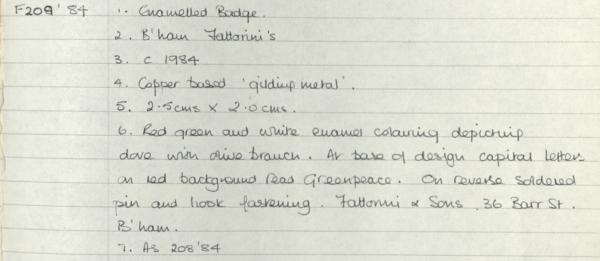 F209'84 1. Enamelled Badge.
2. B'ham Fattorini's
3. c 1984
4. Copper based 'gilding metal'.
5. 2.5cms x 2.0cms.
6. Red green and white enamel colouring depicting
dove with olive branch. At base of design capital letters
on red background read Greenpeace. On reverse soldered
pin and hook fastening. Fattorini & Sons, 36 Barr St.
B'ham.
7. As 208'84